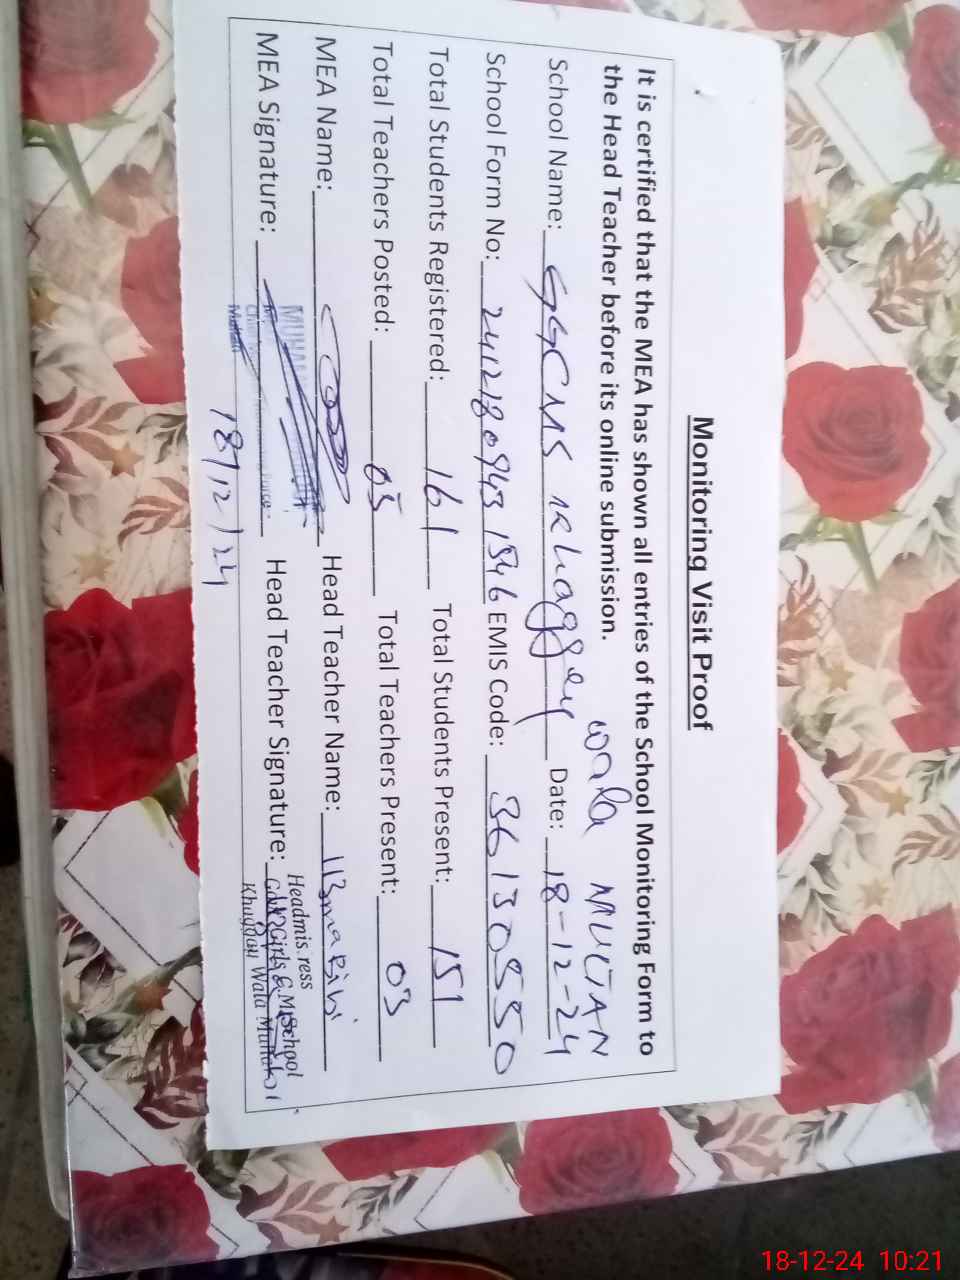 Monitoring Visit Proof
It is certified that the MEA has shown all entries of the School Monitoring Form to
the Head Teacher before its online submission.
wala MULTAN
School Name: GGCMS Date: 18-12-24
School Form No: EMIS Code: 36130550
Total Students Registered: 161 Total Students Present: 151
Total Teachers Posted: 05 Total Teachers Present: 03
MEA Name: Head Teacher Name: Bibi
MEA Signature: Head Teacher Signature:
Girls School
Wala
18/12/24
18-12-24 10:21